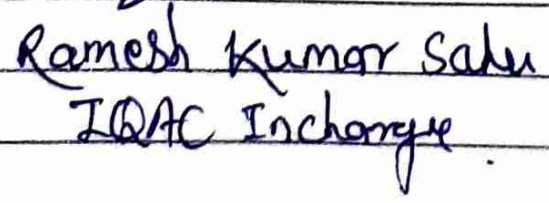 Ramesh Kumar Sahu
IQAC Incharge.